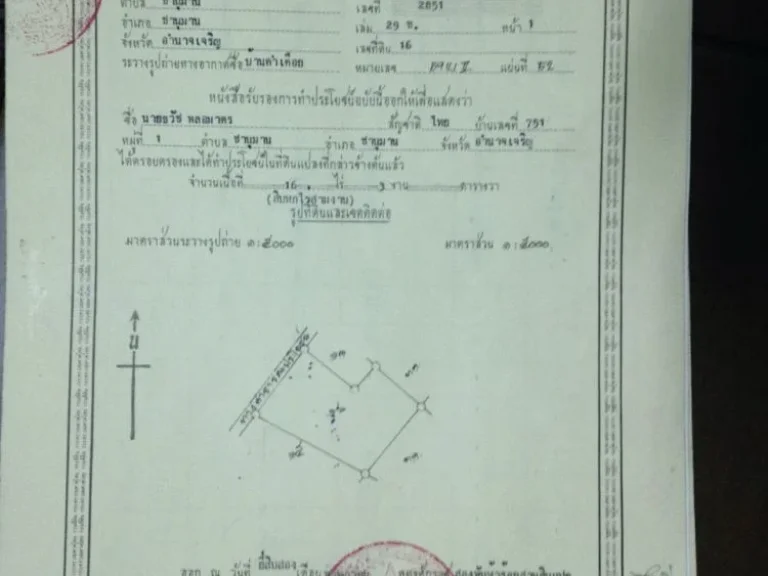 ตำบล ชานุมาน เลขที่ 2851
อำเภอ ชานุมาน เล่ม 29 ข. หน้า 1
จังหวัด อำนาจเจริญ เลขที่ดิน 16
ระวางรูปถ่ายทางอากาศชื่อ บ้านคำเดือย หมายเลข แผ่นที่
หนังสือรับรองการทำประโยชน์ฉบับนี้ออกให้เพื่อแสดงว่า
ชื่อ นายธวัช พลอมาตร สัญชาติ ไทย บ้านเลขที่ 751
หมู่ที่ 1 ตำบล ชานุมาน อำเภอ ชานุมาน จังหวัด อำนาจเจริญ
ได้ครอบครองและได้ทำประโยชน์ในที่ดินแปลงที่กล่าวข้างต้นแล้ว
จำนวนเนื้อที่ 16 ไร่ 3 งาน ตารางวา
(สิบหกไร่สามงาน)
รูปที่ดินและเขตติดต่อ
มาตราส่วนระวางรูปถ่าย ๑:๕๐๐๐ มาตราส่วน ๑:๕๐๐๐
น
ออก ณ วันที่ ยี่สิบสอง เดือน